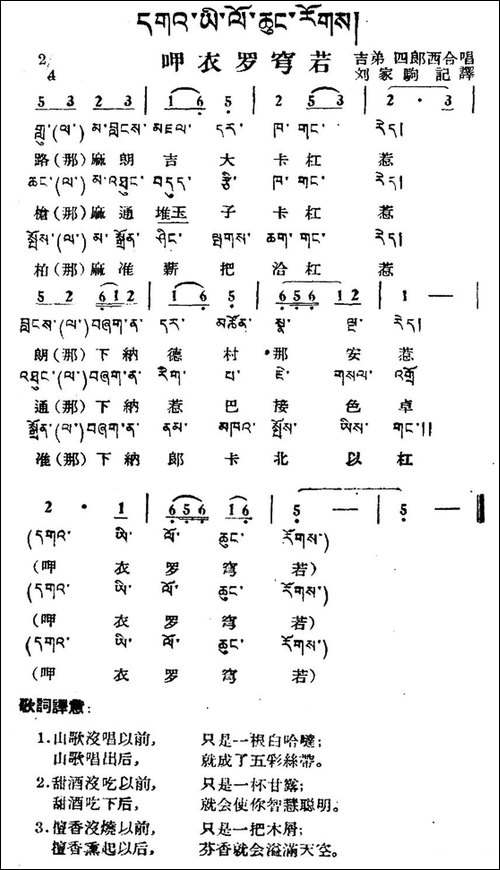 དགའ་ཡི་ལོ་ཆུང་རོགས།
呷衣罗穹若
吉弟 四郎西合唱
刘家驹記譯
2/4
5 3 2 3 | 1 6 5 | 2 5 3 | 2 · 3 |
གླུ(ལ་)མ་བླངས་མཇལ་དར་ཁ་གང་རེད།
路(那)麻朗吉大卡杠惹
ཆང་(ལ་)མ་འཐུང་བདུད་རྩི་ཁ་གང་རེད།
槍(那)麻通堆玉子卡杠惹
སྤོས་(ལ་)མ་སྲོན་ཤིང་ཕྲུགས་ཆག་གང་རེད།
柏(那)麻准薪把洽杠惹
5 2 6 1 2 | 1 6 5 | 6 5 6 1 2 | 1 — |
བླངས་(ལ་)བཞག་ན་དར་མཚོན་སྣ་ལྔ་རེད།
朗(那)下納德村那安惹
འཐུང་(ལ་)བཞག་ན་རིག་པ་ཇེ་གསལ་འགྲོ
通(那)下納惹巴接色卓
སྲོན་(ལ་)བཞག་ན་ནམ་མཁའ་སྤོས་ཡིས་གང་།།
准(那)下納郎卡北以杠
2 · 1 | 6 5 6 1 6 | 5 — | 5 — ‖
(དགའ་ཡི་ལོ་ཆུང་རོགས་)
(呷衣罗穹若)
(དགའ་ཡི་ལོ་ཆུང་རོགས་)
(呷衣罗穹若)
(དགའ་ཡི་ལོ་ཆུང་རོགས་)
(呷衣罗穹若)
歌詞譯意:
1.山歌沒唱以前, 只是一根白哈噠;
山歌唱出后, 就成了五彩絲帶。
2.甜酒沒吃以前, 只是一杯甘露;
甜酒吃下后, 就会使你智慧聰明。
3.檀香沒燒以前, 只是一把木屑;
檀香熏起以后, 芬香就会溢滿天空。